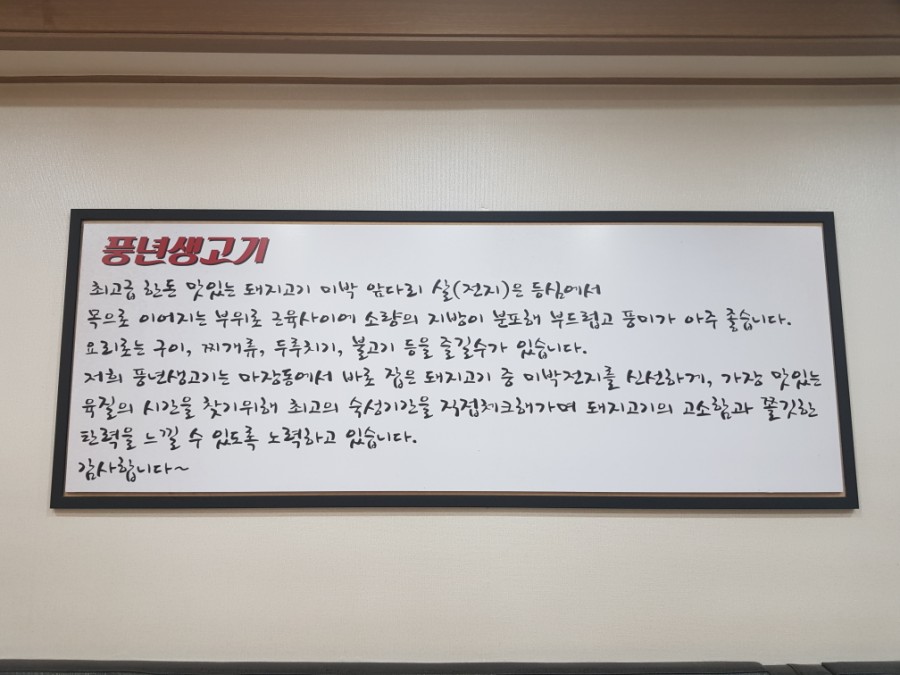 풍년생고기
최고급 한돈 맛있는 돼지고기 미박 앞다리 살(전지)은 등심에서
목으로 이어지는 부위로 근육사이에 소량의 지방이 분포해 부드럽고 풍미가 아주 좋습니다.
요리로는 구이, 찌개류, 두루치기, 불고기 등을 즐길수가 있습니다.
저희 풍년생고기는 마장동에서 바로 잡은 돼지고기 중 미박전지를 신선하게, 가장 맛있는
육질의 시간을 찾기위해 최고의 숙성기간을 직접체크해가며 돼지고기의 고소함과 쫄깃한
탄력을 느낄 수 있도록 노력하고 있습니다.
감사합니다~